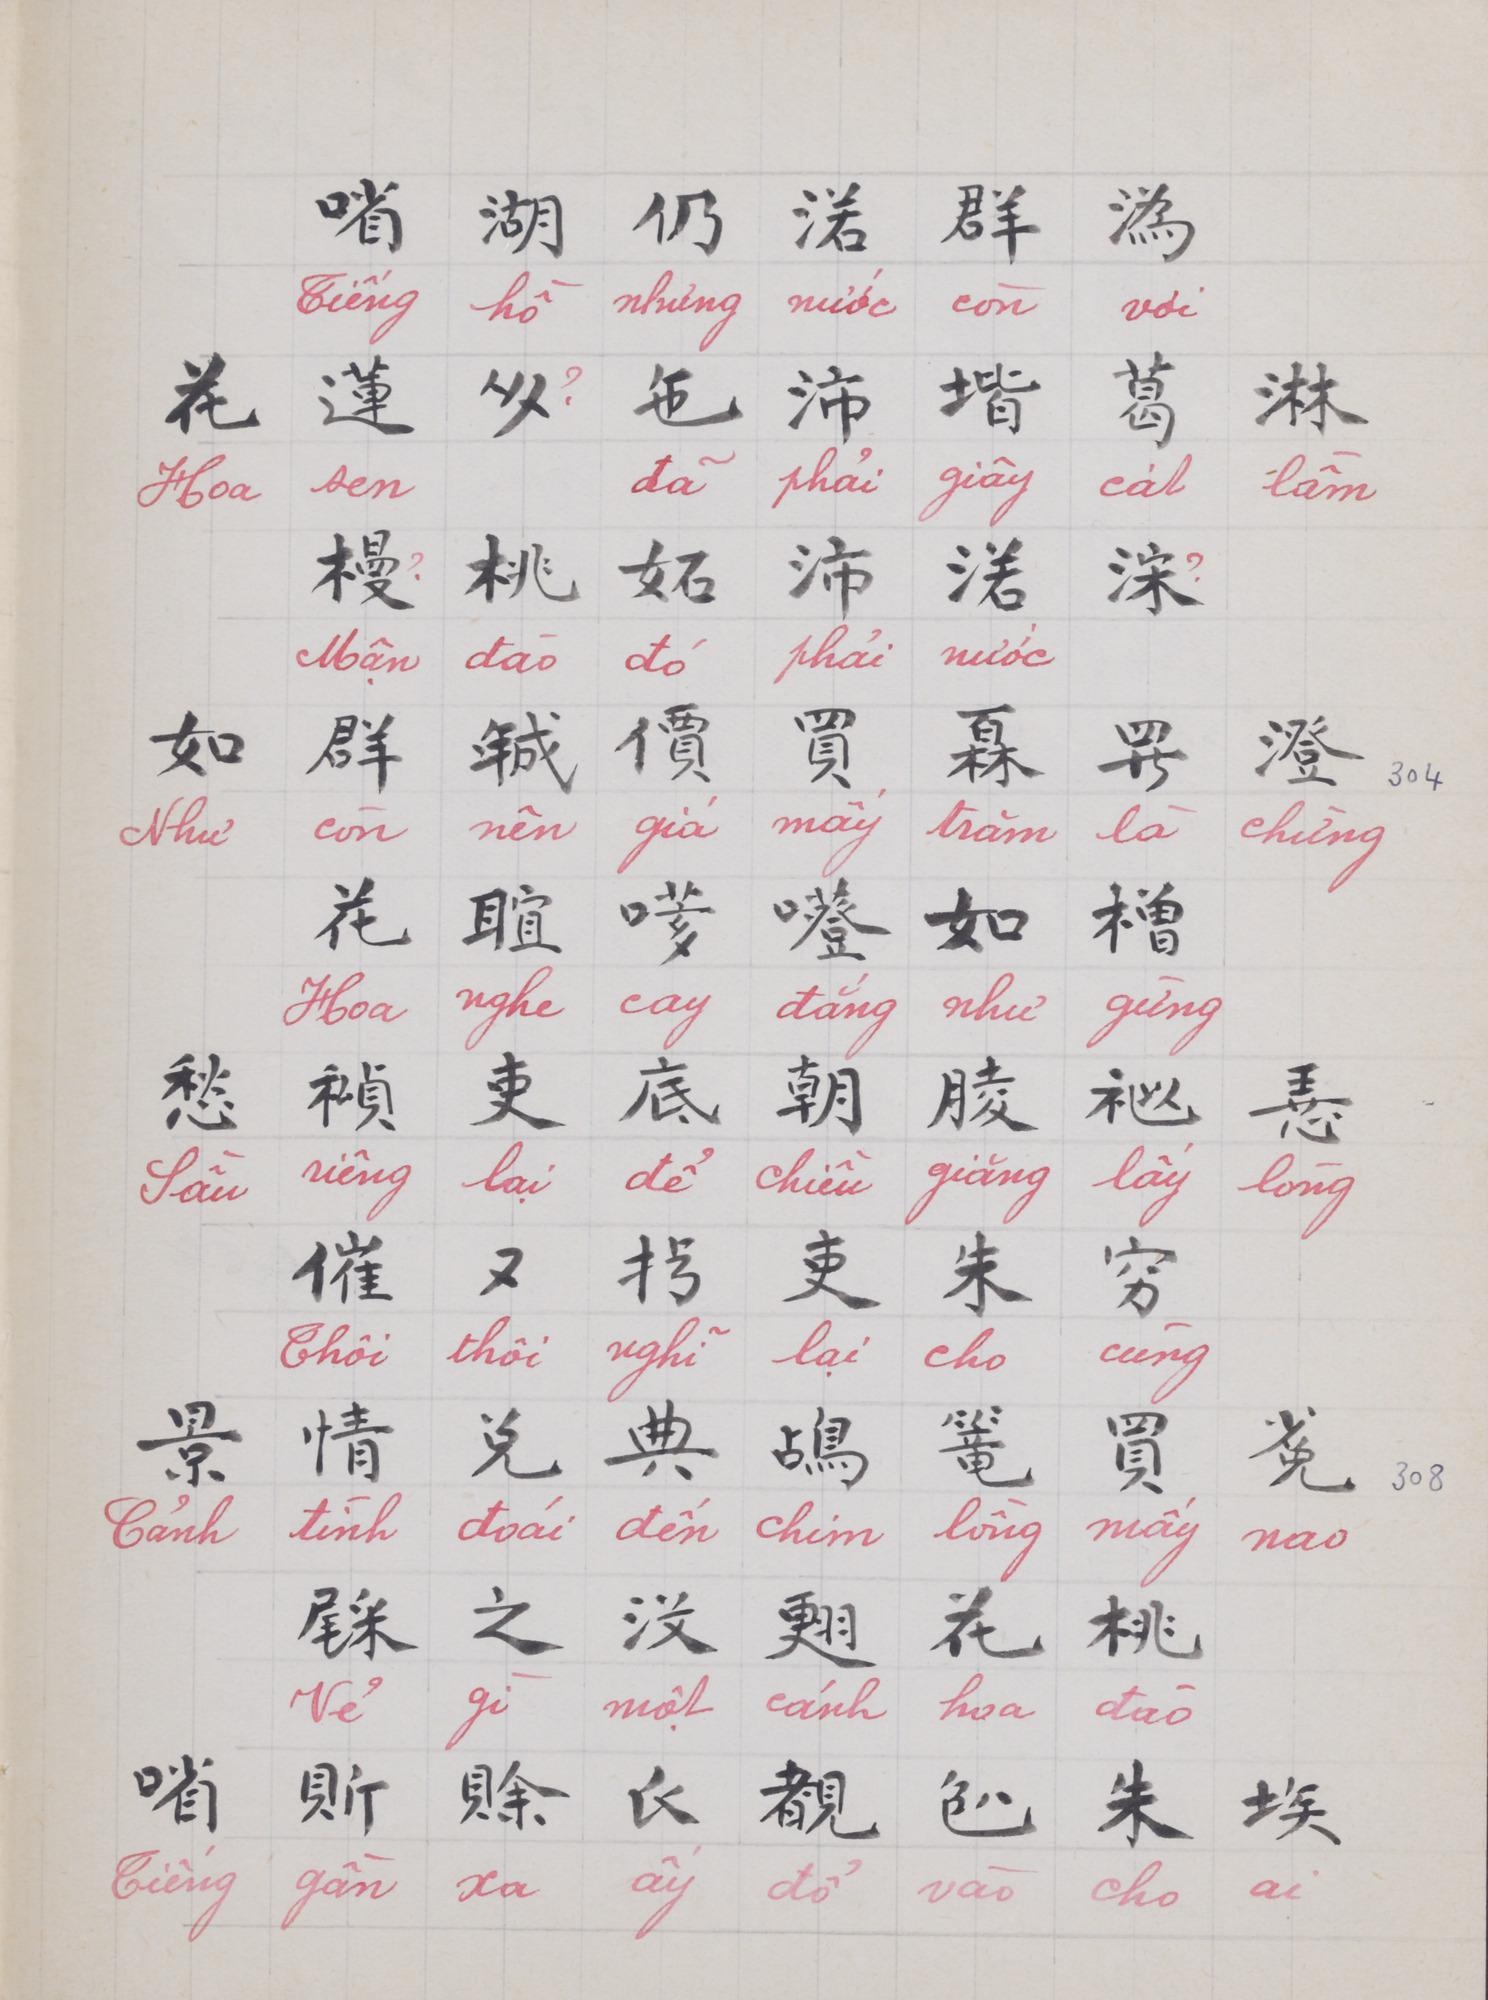 哨 湖 仍 渃 群 溈
Tiếng hồ nhưng nước còn vơi
花 蓮 ? 㐌 沛 堦 葛 淋
Hoa sen đã phải giây cát lầm
榠? 桃 妬 沛 渃 深?
Mận đào đó phải nước
如 群 𢧚 價 買 𤾓 𱺵 澄 304
Như còn nên giá mấy trăm là chừng
花 𦖑 𠹽 㘇 如 橧
Hoa nghe cay đắng như gừng
愁 𥢆 吏 底 朝 䏠 𥙩 𢚸
Sầu riêng lại để chiều giăng lấy lòng
催 又 拐 吏 朱 穷
Thôi thôi nghĩ lại cho cùng
景 情 兑 典 鴣 篭 買 𱜢 308
Cảnh tình đoái đến chim lồng mấy nao
𨤔 之 没 𦑃 花 桃
Vẻ gì một cánh hoa đào
哨 𧵆 賒 氏 覩 𠓨 朱 埃
Tiếng gần xa ấy đổ vào cho ai